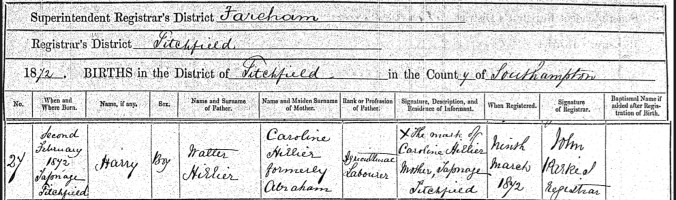 Superintendent Registrar's District Fareham
Registrar's District Titchfield
1872. BIRTHS in the District of Titchfield in the County of Southampton
No. When and Where Born. Name, if any. Sex. Name and Surname of Father. Name and Maiden Surname of Mother. Rank or Profession of Father. Signature, Description, and Residence of Informant. When Registered. Signature of Registrar. Baptismal Name if added after Registration of Birth.
27
Second
February
1872
Titchfield
Harry
Boy
Walter
Hillier
Caroline
Hillier
formerly
Abraham
Agricultural
Labourer
X The mark of
Caroline Hillier
Mother,
Titchfield
Ninth
March
1872
John
Registrar